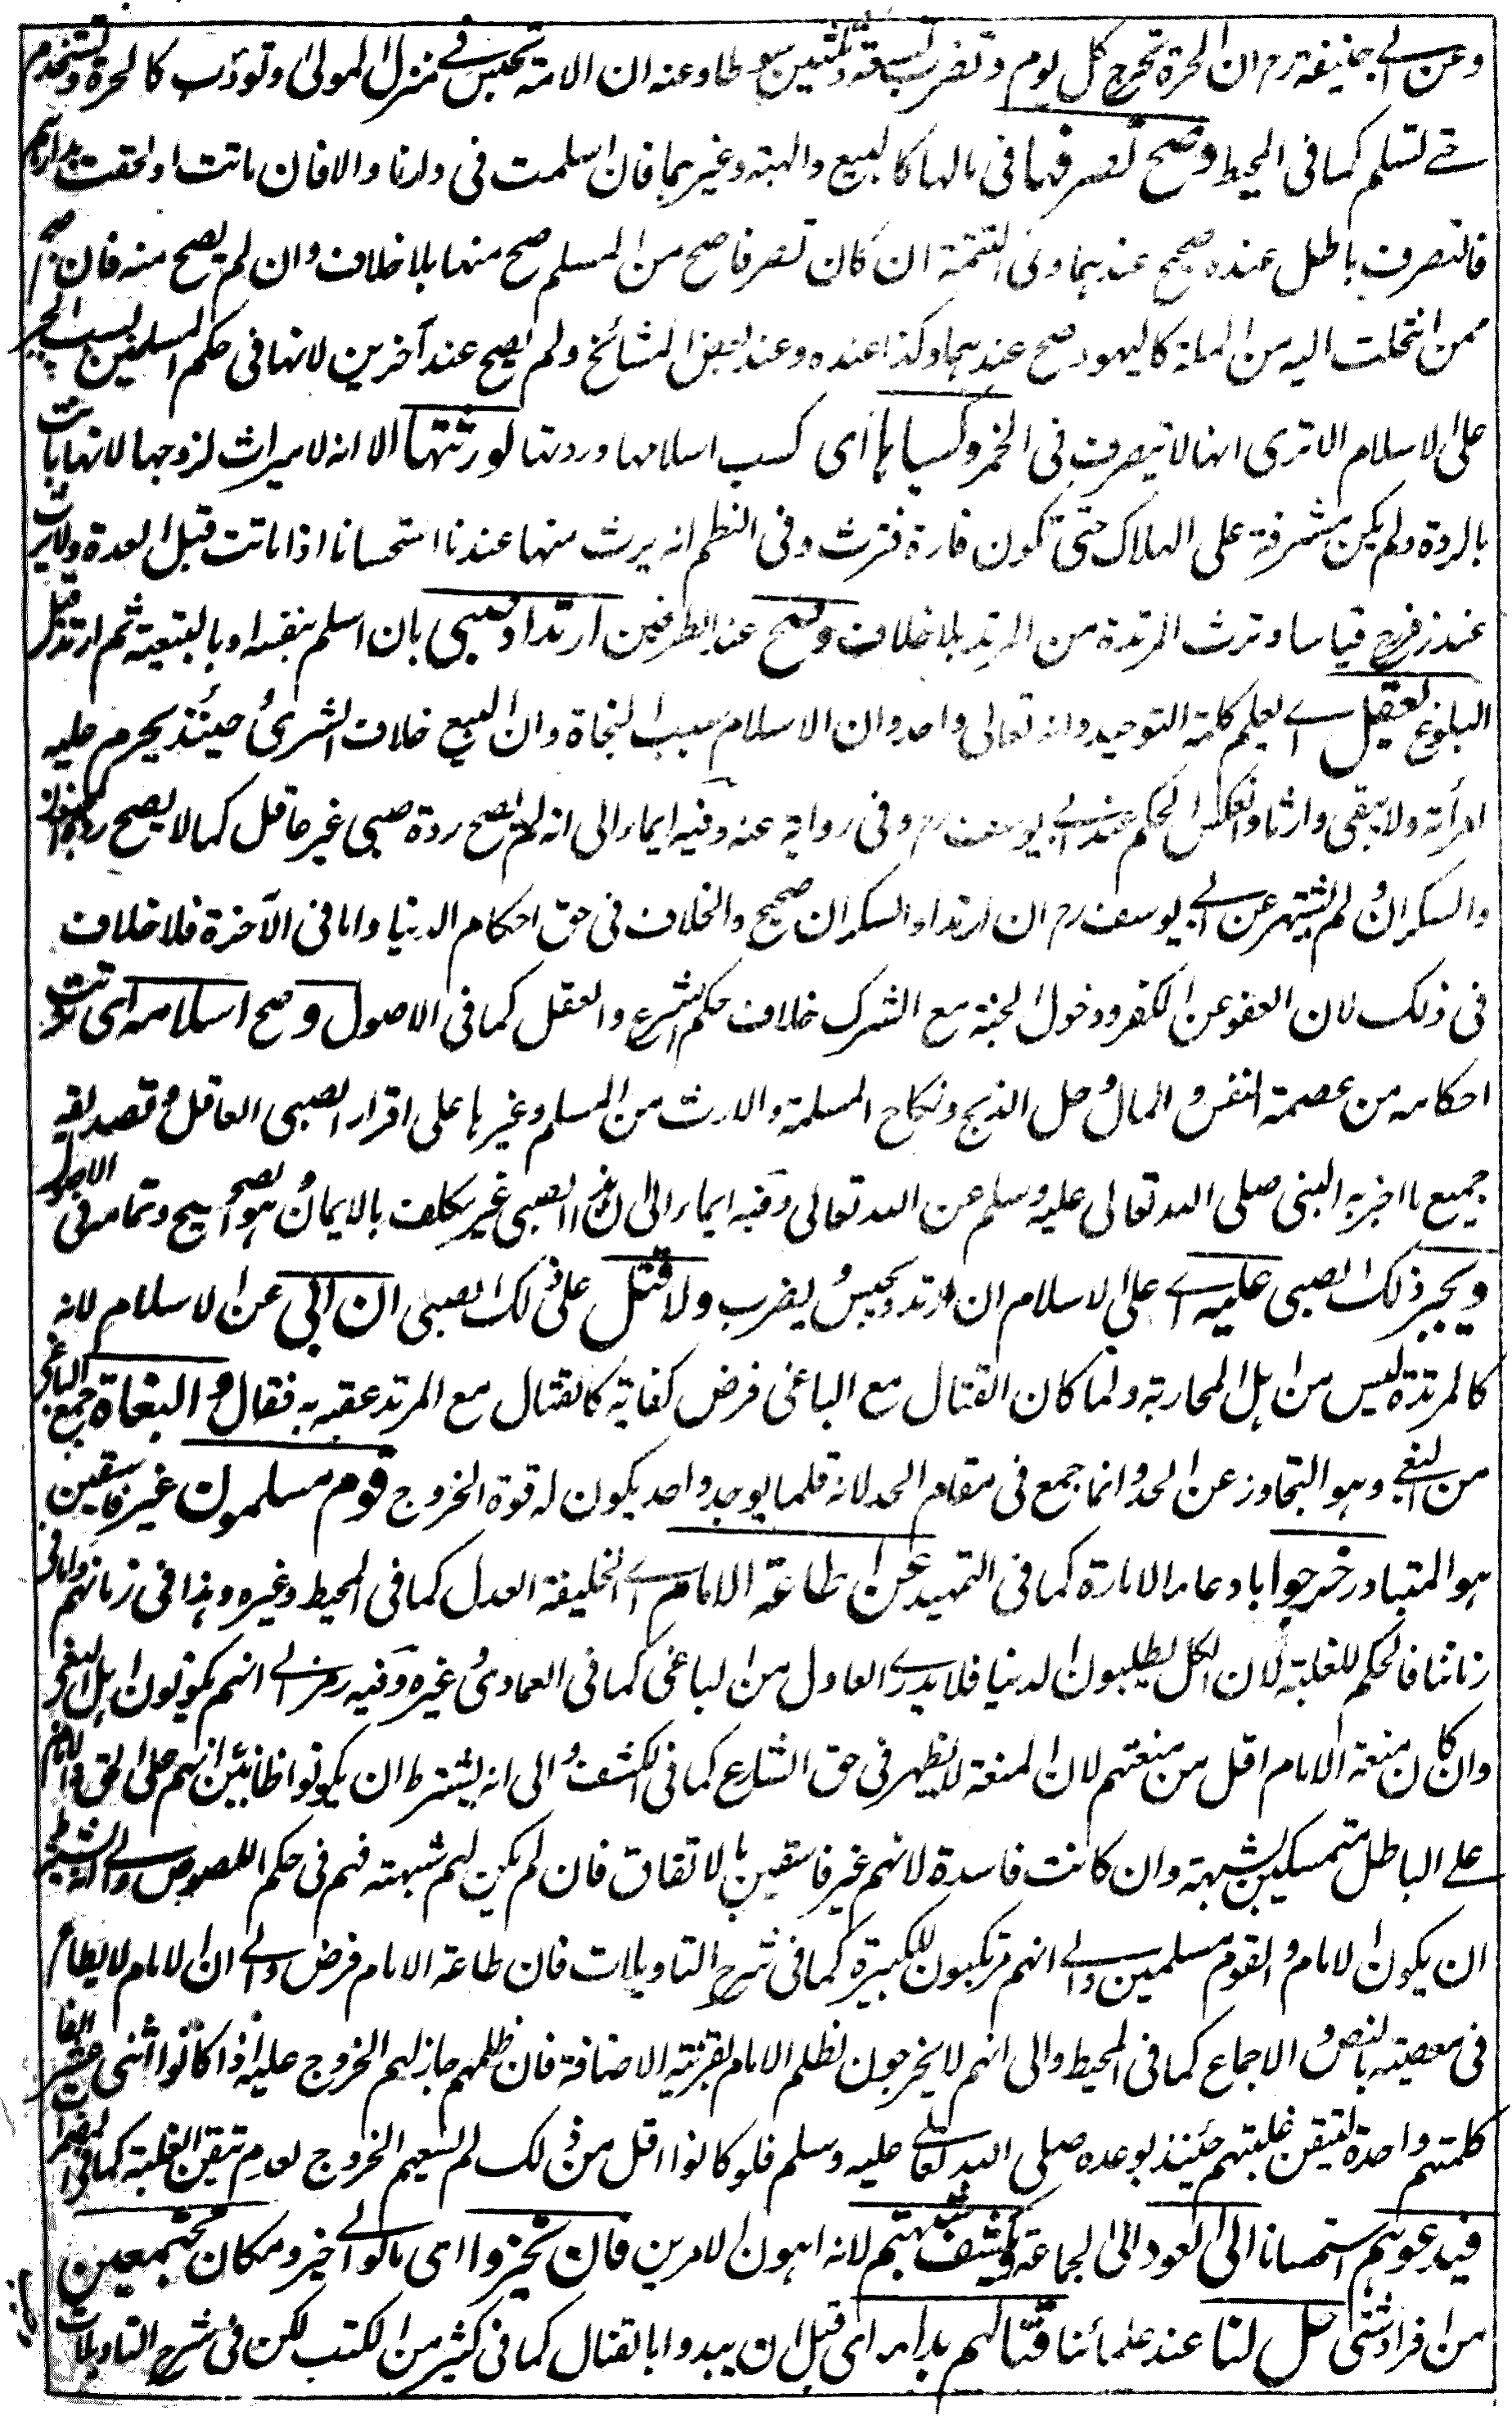 وعن ابے حنیفة رح ان الحرة تخرج كل يوم وتضرب تسعة وثلثين سوطا وعنه ان الامة تحبس فے منزل المولى وتودب كالحرة وتستخدم
حتے تسلم كما فى المحيط وصح تصرفها فى مالها كالبيع والهبة وغيرهما فان اسلمت فى دارنا والا فان ماتت او لحقت بدارهم
فالتصرف باطل عنده صحيح عندهما وفى التتمة ان كان تصرفا صح من المسلم صح منها بلا خلاف وان لم يصح منه فان صح
ممن انتحلت اليه من الملة كاليهود صح عندهما وكذا عنده وعند بعض المشائخ ولم يصح عند آخرين لانها فى حكم المسلمين بسبب الجبر
على الاسلام الا ترى انها لا تتصرف فى الخمر وكسباها اى كسب اسلامها وردتها لورثتها الا انه لا ميراث لزوجها لانها بانت
بالردة ولم يكن مشرفة على الهلاك حتى تكون فارة فترث وفى النظم انه يرث منها عندنا استحسانا اذا ماتت قبل العدة ولا يرث
عند زفر رح قياسا وترث المرتدة من المرتد بلا خلاف وصح عند الطرفين ارتداد صبى بان اسلم بنفسه او بالتبعية ثم ارتد قبل
البلوغ يعقل اے يعلم كلمة التوحيد وانه تعالى واحد وان الاسلام سبب النجاة وان البيع خلاف الشرى وحينئذ يحرم عليه
امرأته ولا يبقى وارثا وانعكس الحكم عند ابے يوسف رح وفى رواية عنه وفيه ايماء الى انه لم يصح ردة صبى غير عاقل كما لا يصح ردة المجنون
والسكران ولم يشتهر عن ابے يوسف رح ان ارتداد السكران صحيح والخلاف فى حق احكام الدنيا واما فى الآخرة فلا خلاف
فى ذلك لان العفو عن الكفر ودخول الجنة مع الشرك خلاف حكم الشرع والعقل كما فى الاصول وصح اسلامه اى ترتب
احكامه من عصمة النفس والمال وحل الذبح ونكاح المسلمة والارث من المسلم وغيرها على اقرار الصبى العاقل وتصديقه
جميع ما اخبر به النبى صلى الله تعالى عليه وسلم عن الله تعالى وفيه ايماء الى ان هذا الصبى غير مكلف بالايمان وهو الصحيح وتمامه فى الاصول
ويجبر ذلك الصبى عليه اے على الاسلام ان ارتد ويحبس ويضرب ولا قتل على ذلك الصبى ان ابى عن الاسلام لانه
كالمرتدة ليس من اهل المحاربة ولما كان القتال مع الباغى فرض كفاية كالقتال مع المرتد عقبه به فقال والبغاة جمع الباغى
من البغے وهو التجاوز عن الحد وانما جمع فى مقام الحد لانه قلما يوجد واحد يكون له قوة الخروج قوم مسلمون غير فاسقين
هو المتبادر خرجوا بادعاء الامارة كما فى التمهيد عن طاعة الامام اے الخليفة العدل كما فى المحيط وغيره وهذا فى زمانهم واما فى
زماننا فالحكم للغلبة لان الكل يطلبون الدنيا فلا يدرے العادل من الباغى كما فى العمادى وغيره وفيه رمز الے انهم يكونون اهل البغى
وان كان منعة الامام اقل من منعتهم لان المنعة لا يظهر فى حق الشارع كما فى الكشف والى انه يشترط ان يكونوا ظانين انهم على الحق والامام
علے الباطل متمسكين بشبهة وان كانت فاسدة لانهم غير فاسقين بالاتفاق فان لم يكن لهم شبهة فهم فى حكم اللصوص والے انه يشترط
ان يكون الامام والقوم مسلمين والے انهم مرتكبون للكبيرة كما فى شرح التاويلات فان طاعة الامام فرض والے ان الامام لا يطاع
فى معصية بالنص والاجماع كما فى المحيط والى انهم لا يخرجون لظلم الامام بقرينة الاضافة فان ظلمهم جاز لهم الخروج عليه اذا كانوا اثنى عشر الفا
كلمتهم واحدة لتيقن غلبتهم حينئذ بوعده صلى الله تعالے عليه وسلم فلو كانوا اقل من ذلك لم يسعهم الخروج لعدم تيقن الغلبة كما فى المضمرات
فيدعوهم استحسانا الى العود الى الجماعة وكشف شبهتهم لانه اهون الامرين فان تحيزوا اى مالوا الے خير ومكان مجتمعين
من افراد شتى حل لنا عند علمائنا قتالهم بدأ اى قبل ان يبدوا بالقتال كما فى كثير من الكتب لكن فى شرح التاويلات